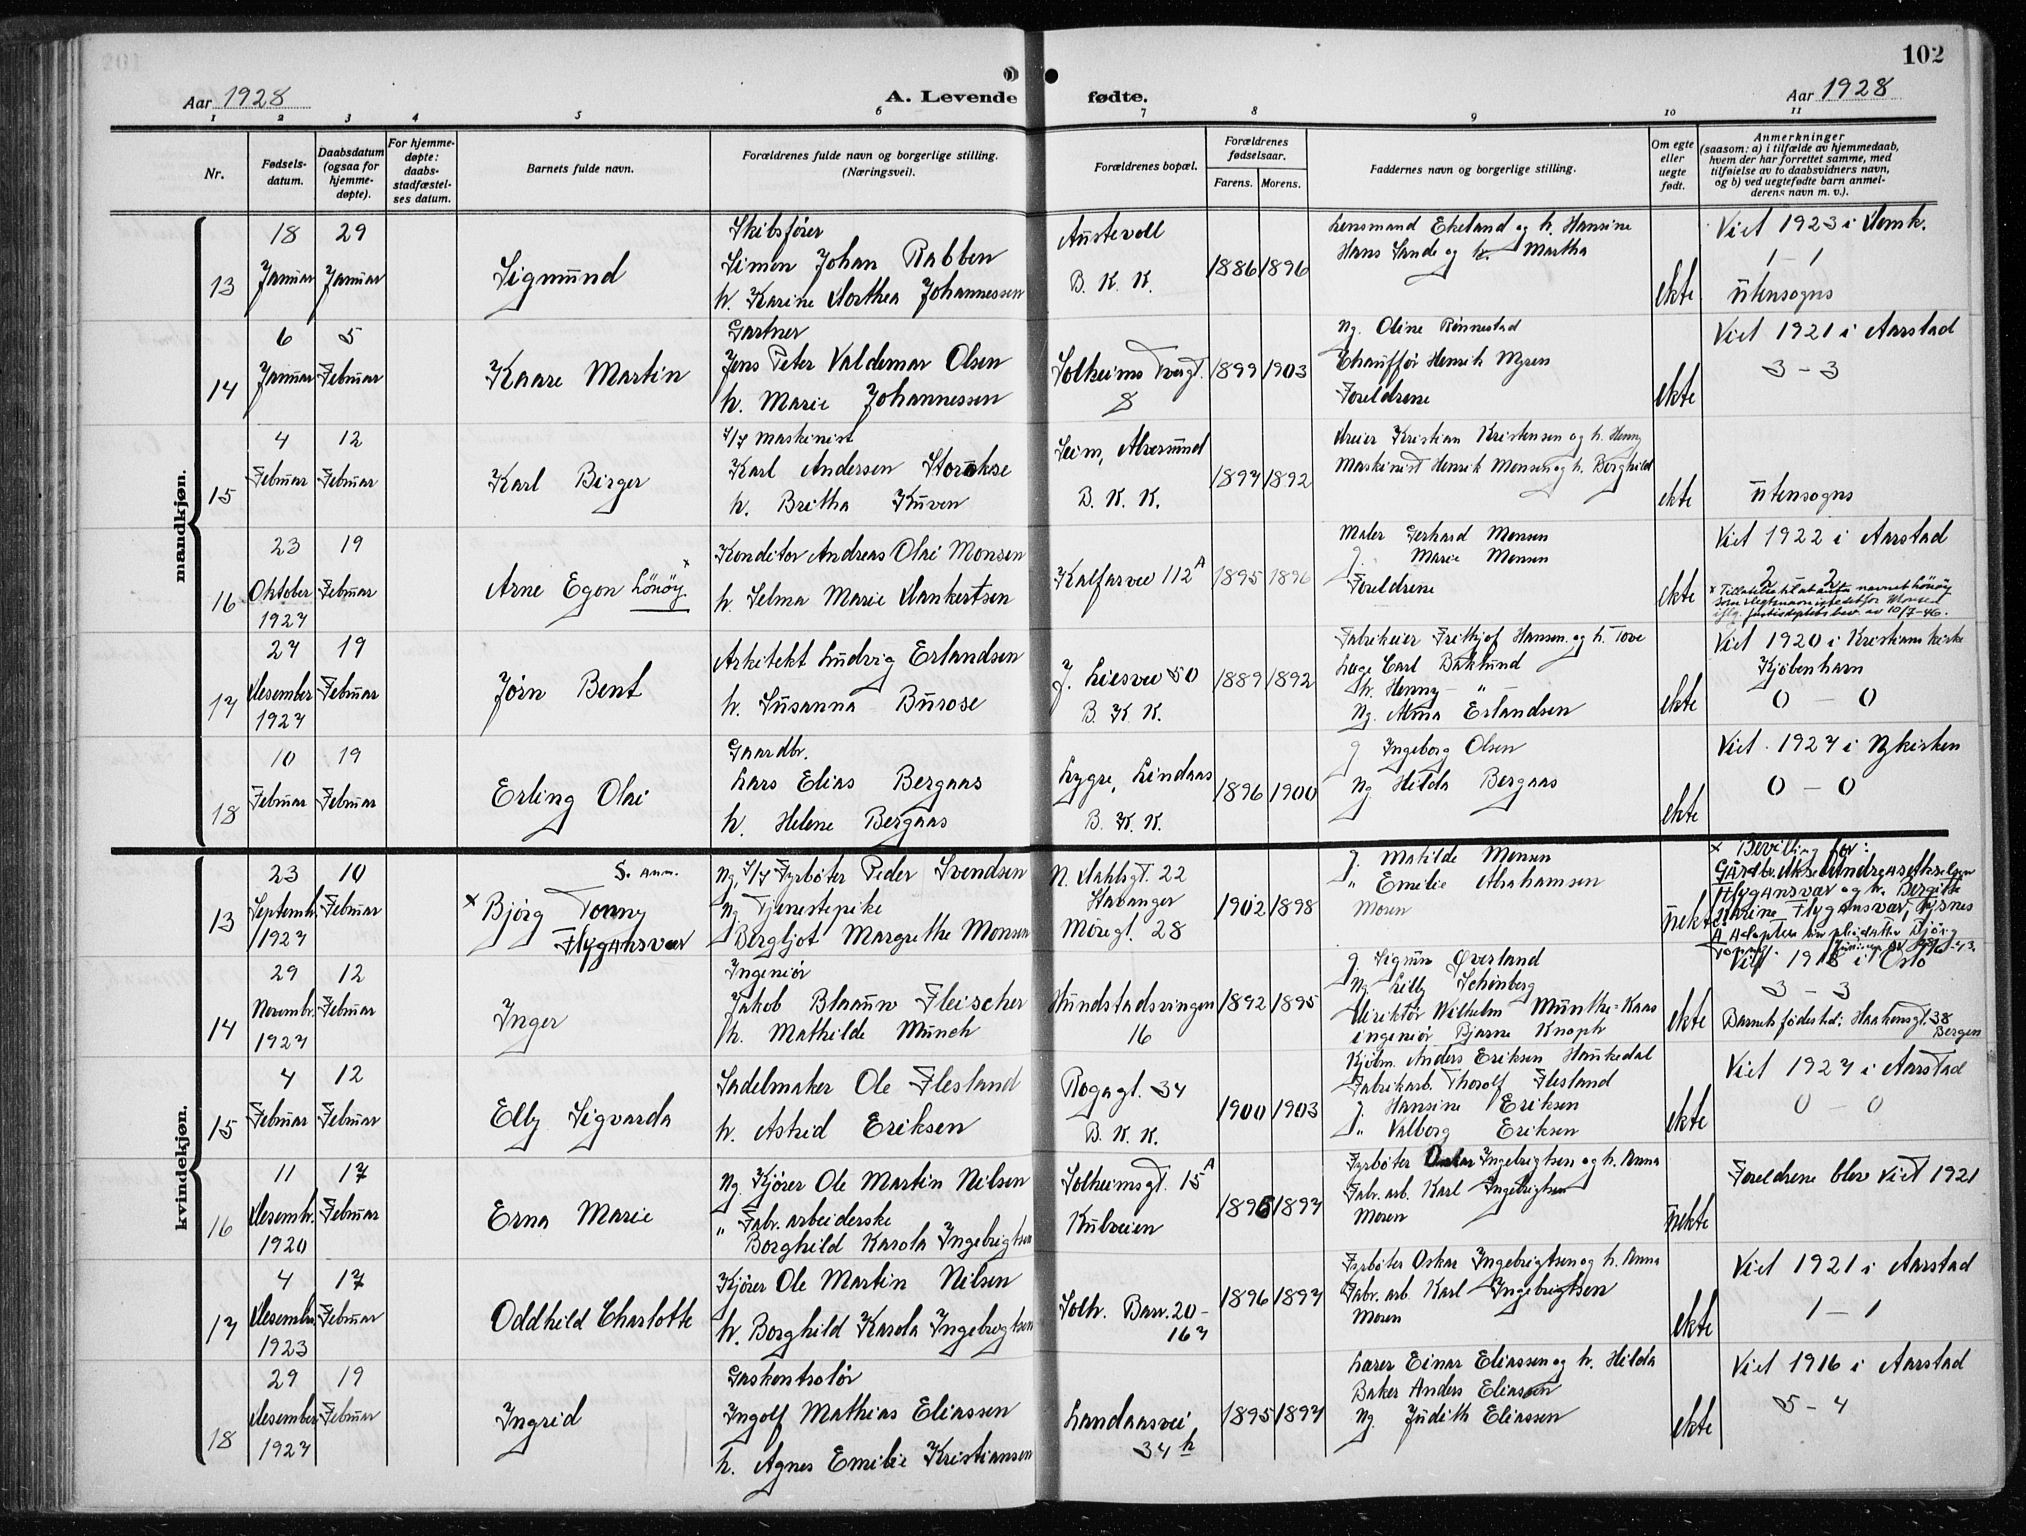 102
Aar 1928
A. Levende fødte.
Aar 1928
1 2 3 4 5 6 7 8 9 10 11
Nr.
Fødsels-
datum.
Daabsdatum
(ogsaa for
hjemme-
døpte).
For hjemme-
døpte:
daabs-
stadfæstel-
ses datum.
Barnets fulde navn.
Forældrenes fulde navn og borgerlige stilling.
(Næringsvei).
Forældrenes bopæl.
Forældrenes
fødselsaar.
Farens. Morens.
Faddernes navn og borgerlige stilling.
Om egte
eller
uegte
født.
Anmerkninger
(saasom: a) i tilfælde av hjemmedaab,
hvem der har forrettet samme, med
tilføielse av to daabsvidners navn,
og b) ved uegtefødte barn anmel-
derens navn m. v.).
mandkjøn.
13
18
Januar
29
Januar
Sigmund
Skibsfører
Simon Johan Rabben
h. Karine Dorthea Johannessen
Austevoll
B. K. K.
1886 1896
Lensmand Ekeland og h. Hansine
Hans Sande og h. Martha
ekte
Viet 1923 i Domk.
1 – 1
utensogns
14
6
Januar
5
Februar
Kaare Martin
Gartner
Jens Peter Valdemar Olsen
h. Marie Johannessen
Solheims Tvergt.
8
1899 1903
Ug. Oline Rønnestad
Chauffør Henrik Myren
Foreldrene
ekte
Viet 1921 i Aarstad
3 – 3
15
4
Februar
12
Februar
Karl Birger
Maskinist
Karl Andersen Storokse
h. Britha Kuven
Seim, Alversund
B. K. K.
1897 1892
Dreier Kristian Kristensen og h. Henny
Maskinist Henrik Monsen og h. Borghild
ekte
utensogns
16
23
Oktober
1927
19
Februar
Arne Egon Lönöy x
Konditor Andreas Olai Monsen
h. Selma Marie Dankertsen
Kalfarvei 112 A
1895 1896
Maler Gerhard Monsen
g. Marie Monsen
Foreldrene
ekte
Viet 1922 i Aarstad
2 2
x Tillatelse til at anta navnet Lönöy
som slektsnavn istedetfor Monsen
iflg. justisdeptets bev. av 10/7-46.
17
27
Desember
1927
19
Februar
Jørn Bent
Arkitekt Ludvig Erlandsen
h. Susanna Burose
J. Liesvei 50
B. K. K.
1889 1892
Fabrikeier Frithjof Hansen og h. Tove
Læge Carl Baklund
h. Henny "
Ug. Alma Erlandsen
ekte
Viet 1920 i Kristians kirke
Kjøbenhavn
0 – 0
18
10
Februar
19
Februar
Erling Olai
Gaardbr.
Lars Elias Bergaas
h. Helene Bergaas
Lygre, Lindaas
B. K. K.
1896 1900
g. Ingeborg Olsen
Ug. Hilda Bergaas
ekte
Viet 1927 i Nykirken
0 – 0
kvindekjøn.
13
23
Septembr.
1927
10
Februar
S. anm.
x Bjørg Tonny
Flygansvær
Ug. Fyrbøter Peder Svendsen
Ug. Tjenestepike
Bergljot Margrethe Monsen
N. Dahlsgt. 22
Stavanger
Møregt. 28
1902 1898
g. Matilde Monsen
" Emilie Abrahamsen
Moren
uekte
x Bevilling for:
Gårdbr. Aksel Andreas Akselsen
Flygansvær og h. Bergitte
Karine Flygansvær, Tysnes
14
29
Novembr.
1927
12
Februar
Inger
Ingeniør
Jakob Blaauw Fleischer
h. Mathilde Munch
Hundstadsvingen
16
1892 1895
g. Sigrun Øverland
Ug. Lilly Schönberg
Direktør Wilhelm Munthe-Kaas
ingeniør Bjarne Knoph
ekte
Viet 1918 i Oslo
3 – 3
Barnets fødested: Haakonsgt. 38
Bergen
15
4
Februar
12
Februar
Elly Sigvarda
Sadelmaker Ole Flesland
h. Astrid Eriksen
Rogagt. 34
B. K. K.
1900 1903
Kjøbm. Anders Eriksen Haukedal
Fabrikarb. Thorolf Flesland
g. Hansine Eriksen
" Valborg Eriksen
ekte
Viet 1927 i Aarstad
0 – 0
16
11
Desembr.
1920
17
Februar
Erna Marie
Ug. Kjører Ole Martin Nilsen
" Fabr. arbeiderske
Borghild Karola Ingebrigtsen
Solheimsgt. 15 A
Kulveien
1896 1897
Fyrbøter Oskar Ingebrigtsen og h. Anna
Fabr. arb. Karl Ingebrigtsen
Moren
uekte
Foreldrene blev viet 1921
17
4
Desembr.
1923
17
Februar
Oddhild Charlotte
Kjører Ole Martin Nilsen
h. Borghild Karola Ingebrigtsen
Solh. Barr. 20-
167
1896 1897
Fyrbøter Oskar Ingebrigtsen og h. Anna
Fabr. arb. Karl Ingebrigtsen
Moren
ekte
Viet 1921 i Aarstad
1 – 1
18
29
Desember
1927
19
Februar
Ingrid
Gaskontrolør
Ingolf Mathias Eliassen
h. Agnes Emilie Kristiansen
Landaasvei
34 h
1895 1897
Lærer Einar Eliassen og h. Hilda
Baker Anders Eliassen
Ug. Judith Eliassen
ekte
Viet 1916 i Aarstad
5 – 4